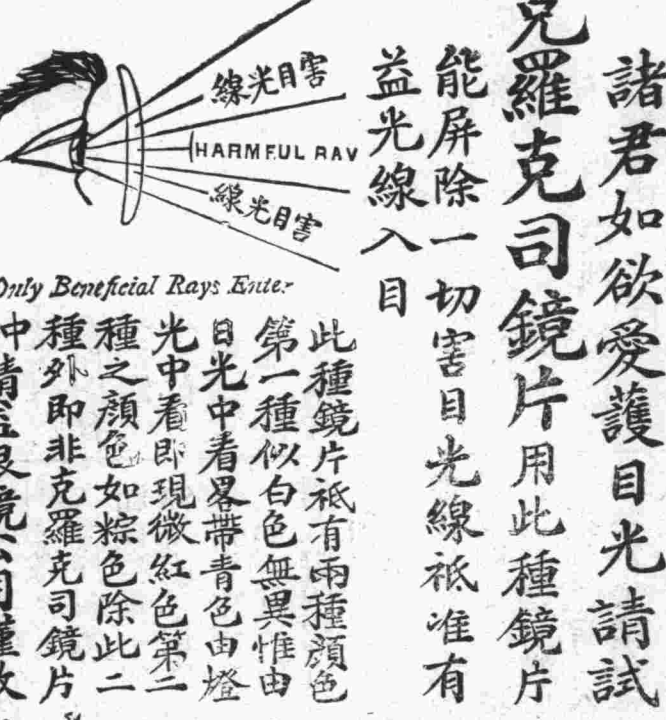 諸君如欲愛護目光請試
克羅克司鏡片用此種鏡片
能屏除一切害目光線祗准有
益光線入目
線光目害
HARMFUL RAY
線光目害
Only Beneficial Rays Enter
此種鏡片祗有兩種顔色
第一種似白色無異惟由
日光中看畧帶青色由燈
光中看即現微紅色第二
種之顔色如粽色除此二
種外即非克羅克司鏡片
中精益眼鏡公司謹啟